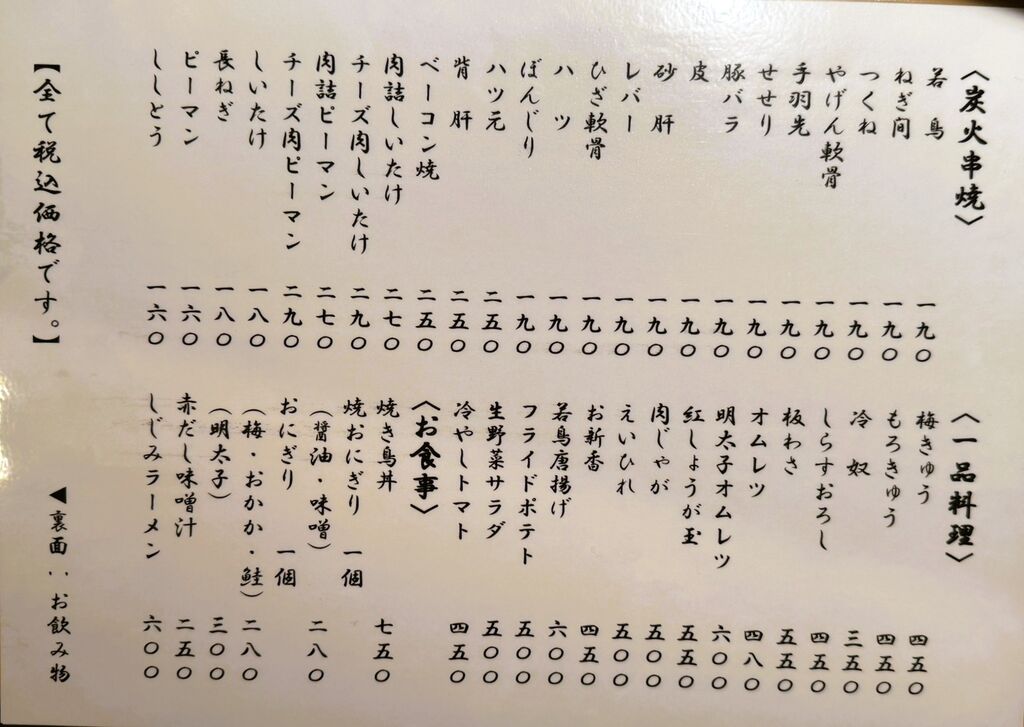 〈炭火串焼〉
若鳥 一九〇
ねぎ間 一九〇
つくね 一九〇
やげん軟骨 一九〇
手羽先 一九〇
せせり 一九〇
豚バラ 一九〇
皮 一九〇
砂肝 一九〇
レバー 一九〇
ひざ軟骨 一九〇
ハツ 一九〇
ぼんじり 一九〇
ハツ元 二五〇
背肝 二五〇
ベーコン焼 二五〇
肉詰しいたけ 二七〇
チーズ肉しいたけ 二九〇
肉詰ピーマン 二七〇
チーズ肉ピーマン 二九〇
しいたけ 一八〇
長ねぎ 一八〇
ピーマン 一六〇
ししとう 一六〇
【全て税込価格です。】
〈一品料理〉
梅きゅう 四五〇
もろきゅう 四五〇
冷奴 三五〇
しらすおろし 四五〇
板わさ 五五〇
オムレツ 四八〇
明太子オムレツ 六〇〇
紅しょうが玉 五五〇
肉じゃが 五〇〇
えいひれ 五〇〇
お新香 四五〇
若鳥唐揚げ 六〇〇
フライドポテト 五〇〇
生野菜サラダ 五〇〇
冷やしトマト 四五〇
〈お食事〉
焼き鳥丼 七五〇
焼おにぎり 一個
(醤油・味噌) 二八〇
おにぎり 一個
(梅・おかか・鮭) 二八〇
(明太子) 三〇〇
赤だし味噌汁 二五〇
しじみラーメン 六〇〇
◀裏面‥お飲み物